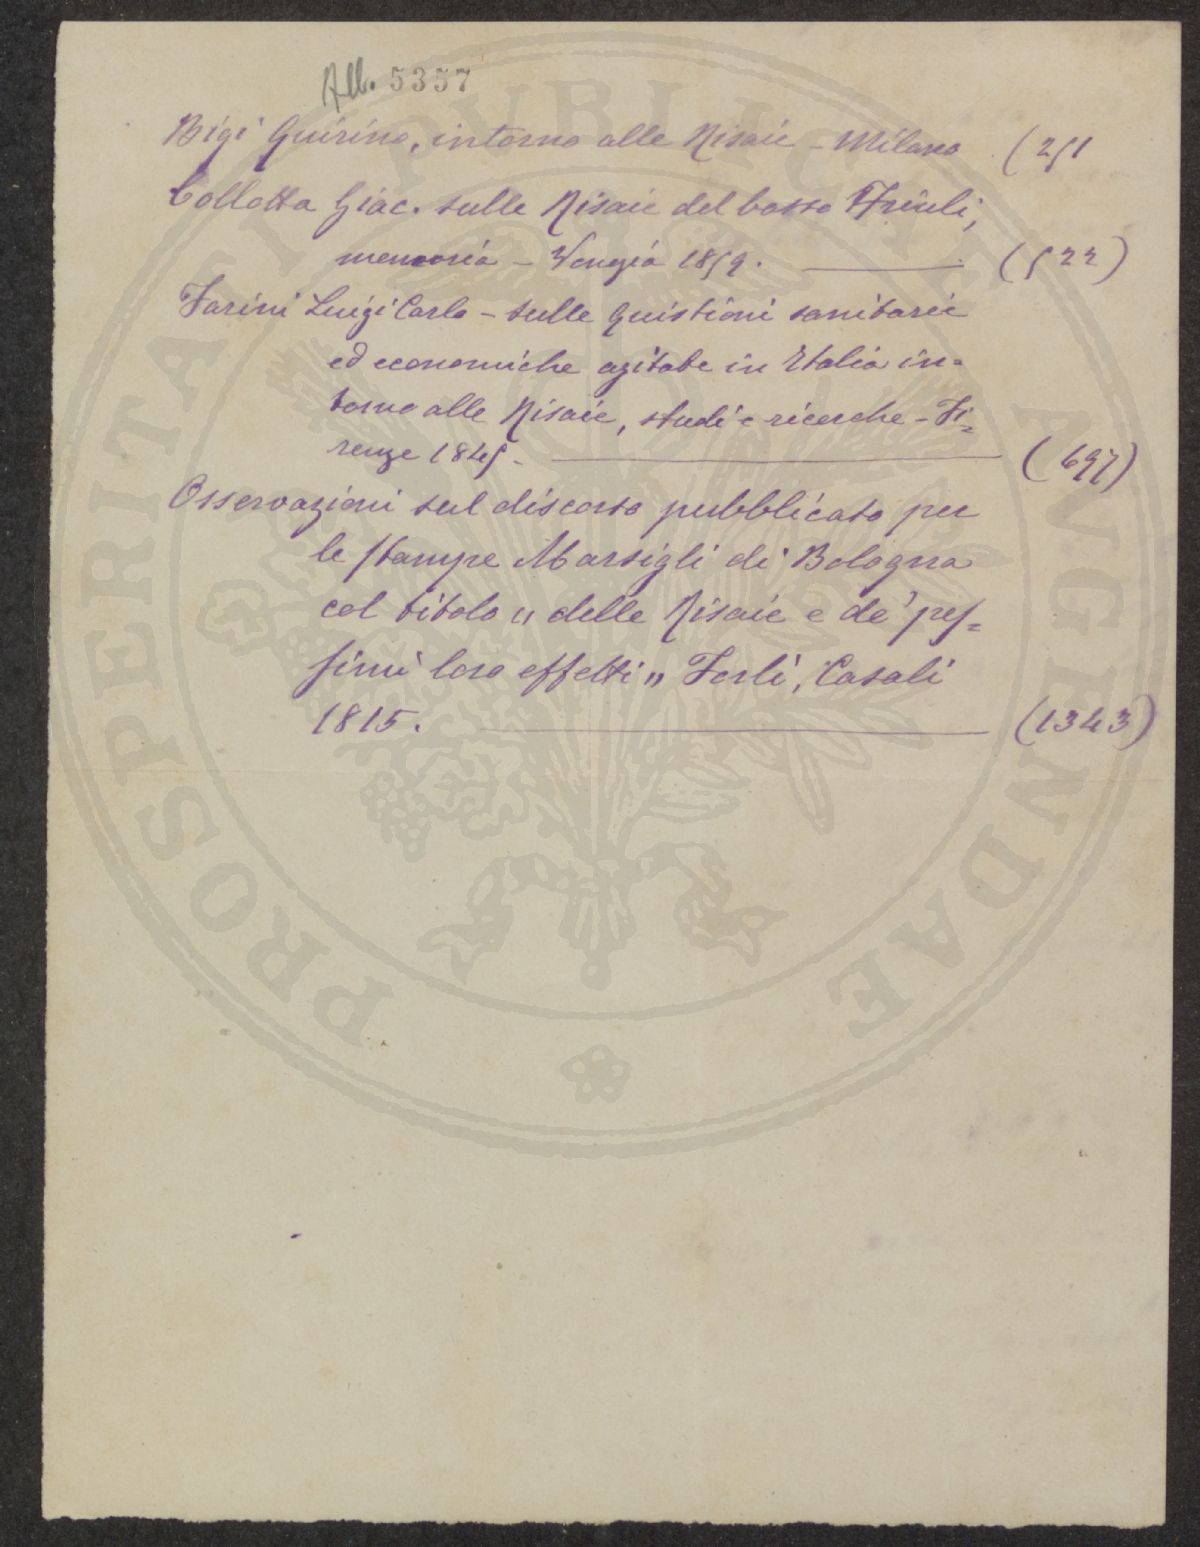 All. 5357
Bigi Quirino, intorno alle Risaie – Milano (251
Collotta Giac. sulle Risaie del basso Friuli,
memoria – Venezia 1859. (522)
Farini Luigi Carlo – sulle quistioni sanitarie
ed economiche agitate in Italia in=
torno alle Risaie, studi e ricerche – Fi=
renze 1845 – (697)
Osservazioni sul discorso pubblicato per
le stampe Marsigli di Bologna
col titolo „ delle Risaie e de' pes=
simi loro effetti „ Forlì, Casali
1815. (1343)
PROSPERITATI PUBLICAE AUGENDAE